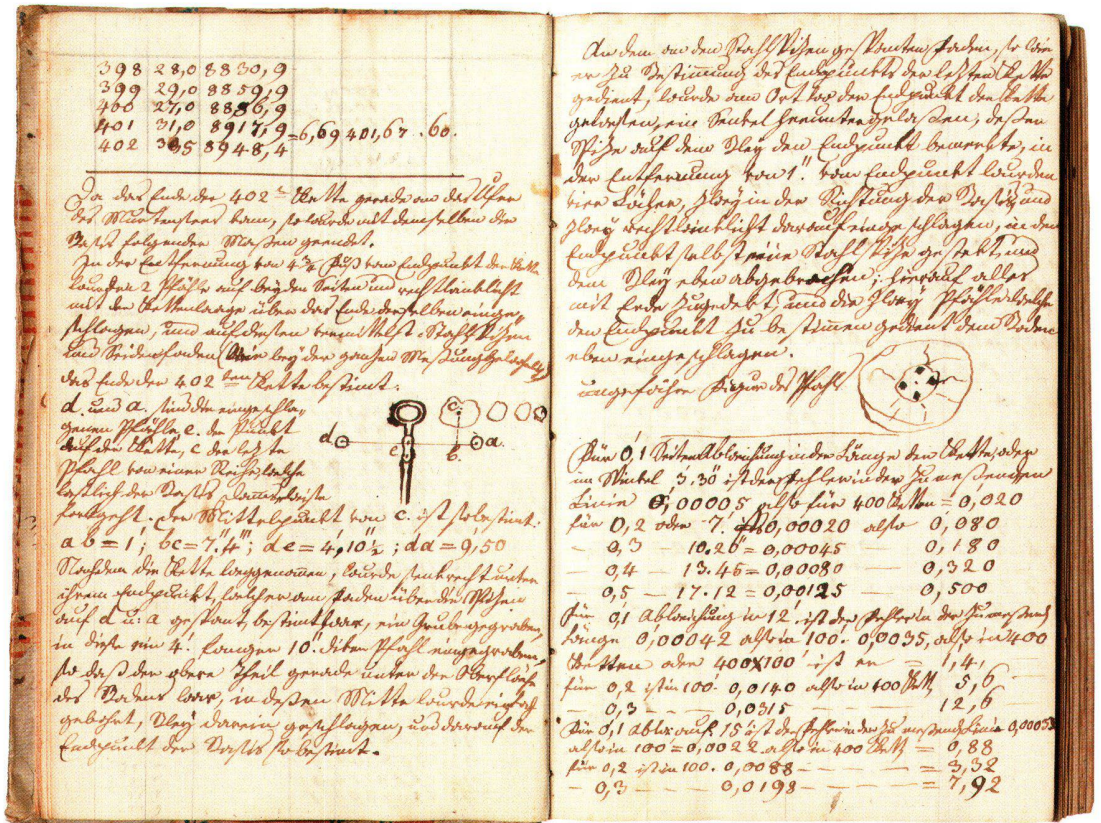 398 28,0 8830,9
399 29,0 8859,9
400 27,0 8886,9
401 31,0 8917,9 =6,69 401,67 . 60.
402 8948,4
Da das Ende der 402 Kette gerade an das Ufer
des Murtensees kam, so wurde mit demselben die
Basis folgender Maßen geendet.
In der Entfernung von 4¾ Fuß vom Endpunkt der Kette
wurden 2 Pfähle auf beyden Seiten und rechtwinklicht
mit der Kettenlaage über das Ende derselben einge-
schlagen, und auf diesen vermittelst Stahlspizen
und Seidenfaden (wie bey der ganzen Meßung
das Ende der 402 ten Kette bestimt.
d. und a. sind die eingeschla-
genen Pfähle e. der Punkt
auf der Kette, c der lezte
Pfahl von einer Reihe, welche
westlich der Basis
fortgeht. Der Mittelpunkt von c. ist so bestimt:
ab = 1'; bc = 7."4"'; de = 4',10"½; da = 9,50
Nachdem die Kette weggenomen, wurde senkrecht unter
ihrem Endpunkt, welcher am Faden über die Spizen
auf d u. a gespant, bestimt war, eine Grube gegraben,
in diese ein 4'. langer 10". diker Pfahl eingegraben,
so daß der obere Theil gerade unter der Oberfläche
des Bodens war, in deßen Mitte wurde ein Loch
gebohrt, Bley darein geschlagen, und darauf der
Endpunkt der Basis so bestimt.
d a e c b
An dem an den Stahlspizen gespanten Faden, so wie
er zu Bestimmung des Endpunkts der lezten Kette
gedient, wurde am Ort wo der Endpunkt der Kette
gewesen, ein Senkel heruntergelaßen, deßen
Spize auf dem Bley den Endpunkt bemerkte, in
der Entfernung von 1". vom Endpunkt wurden
vier Löcher, zwey in der Richtung der Basis und
zwey rechtwinklicht darauf eingeschlagen, in den
Endpunkt selbst eine Stahlspize gesezt, und
dem Bley eben abgebrochen; hierauf alles
mit Erde zugedekt, und die zwey Pfähle welche
den Endpunkt zu bestimen gedient dem Boden
eben eingeschlagen.
ungefähre Figur des Pfahls
Für 0,1 Seiten Abweichung in der Länge der Kette, oder
im Winkel 3.30" ist der Fehler in der zu meßenden
Linie 0,00005 also für 400 Ketten = 0,020
für 0,2 oder 7. 0,00020 also 0,080
— 0,3 — 10.20" = 0,00045 — 0,180
— 0,4 — 13.45 = 0,00080 — 0,320
— 0,5 — 17.12 = 0,00125 — 0,500
Für 0,1 Abweichung in 12 ist der Fehler in der zu meßend
Länge 0,00042 also in 100. 0,0035, also in 400
Ketten oder 400x100 ist er = 1,4,
für 0,2 ist in 100. 0,0140 also in 400 Kett 5,6
— 0,3 — 0,0315 12,6
Für 0,1 Abw: auf 15 ist der Fehler in der zu meßend Linie
also in 100 = 0,0022 also in 400 Kett = 0,88
für 0,2 ist in 100. 0,0088 — = 3,32
— 0,3 — 0,0198 — = 7,92